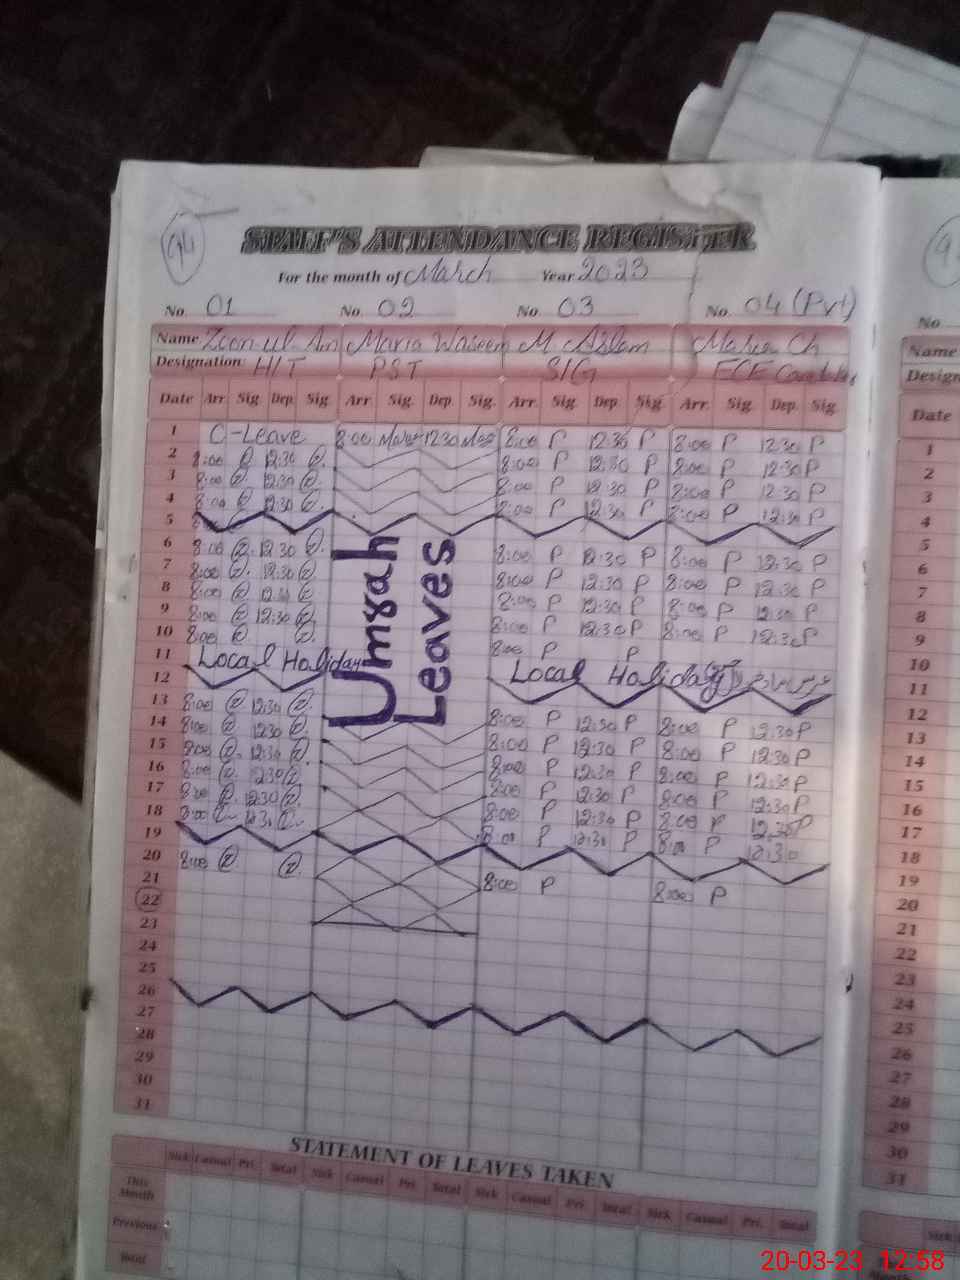 94
STAFF'S ATTENDANCE REGISTER
For the month of March Year 2023
No. 01 No. 02 No. 03 No. 04 (Pvt)
Name Maria Waseem M Aslam
Designation: PST ECE
Date Arr. Sig. Dep. Sig. Arr. Sig. Dep. Sig. Arr. Sig. Dep. Sig. Arr. Sig. Dep. Sig.
1 C-Leave 8:00 12:30 8:00 P 12:30 P 8:00 P 12:30 P
2 8:00 12:30 8:00 P 12:30 P 8:00 P 12:30 P
3 8:00 12:30 8:00 P 12:30 P 8:00 P 12:30 P
4 8:00 12:30 8:00 P 12:30 P 8:00 P 12:30 P
5
6 8:00 12:30 8:00 P 12:30 P 8:00 P 12:30 P
7 8:00 12:30 8:00 P 12:30 P 8:00 P 12:30 P
8 8:00 12:30 8:00 P 12:30 P 8:00 P 12:30 P
9 8:00 12:30 8:00 P 12:30 P 8:00 P 12:30 P
10 8:00 8:00 P P
11 Local Holiday Local Holiday
12
Umrah Leaves
13 8:00 12:30 8:00 P 12:30 P 8:00 P 12:30 P
14 8:00 12:30 8:00 P 12:30 P 8:00 P 12:30 P
15 8:00 12:30 8:00 P 12:30 P 8:00 P 12:30 P
16 8:00 12:30 8:00 P 12:30 P 8:00 P 12:30 P
17 8:00 12:30 8:00 P 12:30 P 8:00 P 12:30 P
18 8:00 12:30 8:00 P 12:30 P 8:00 P 12:30
19
20 8:00 8:00 P 8:00 P
21
22
23
24
25
26
27
28
29
30
31
STATEMENT OF LEAVES TAKEN
Sick Casual Pri. Total Sick Casual Pri. Total Sick Casual Pri. Total Sick Casual Pri. Total
This Month
Previous
Total
No
Name
Design
Date
1
2
3
4
5
6
7
8
9
10
11
12
13
14
15
16
17
18
19
20
21
22
23
24
25
26
27
28
29
30
31
20-03-23 12:58